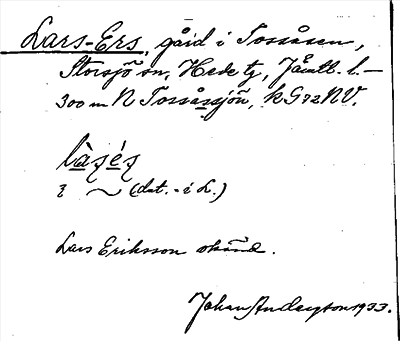 Lars-Ers, gård i Tossåsen,
Storsjö sn, Hede tg, Jämtl. l. –
300 m N Tossåssjön, k G 72 NV.
làsés
i ~ (dat. - i L.)
Lars Eriksson okänd.
Johan Andersson 1933.